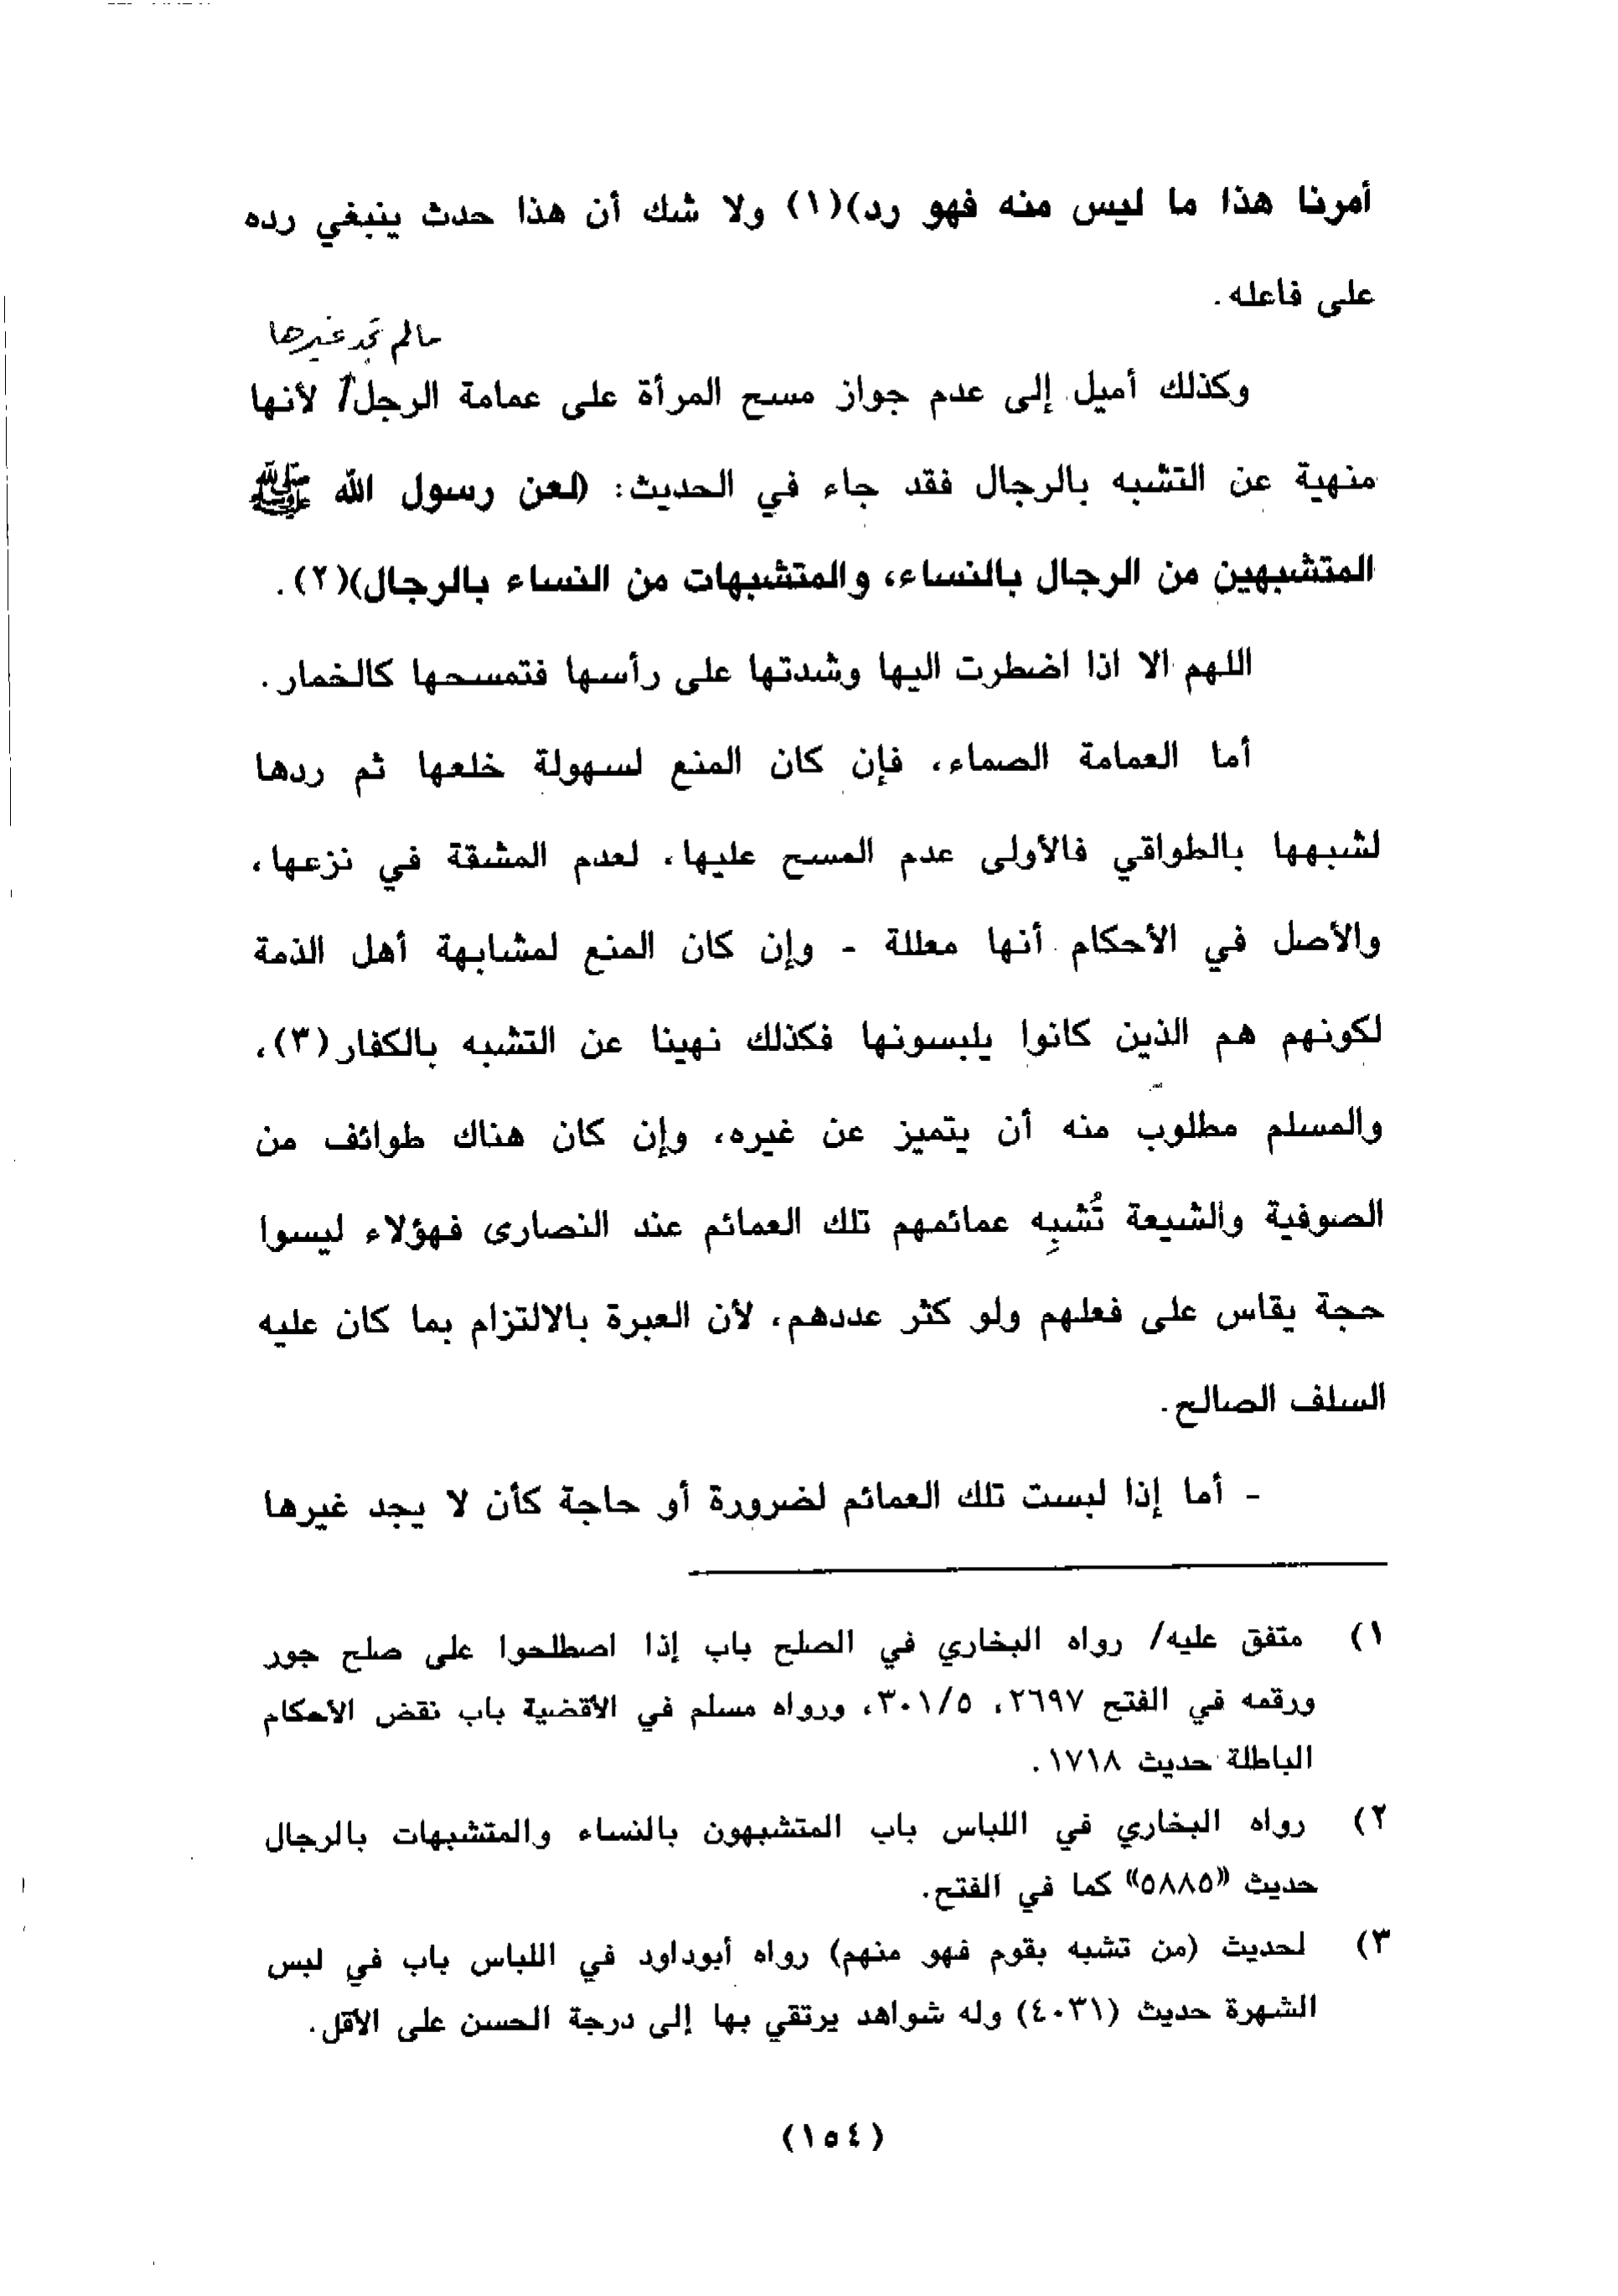 أمرنا هذا ما ليس منه فهو رد)(١) ولا شك أن هذا حدث ينبغي رده
على فاعله.
مالم تجد غيرها
وكذلك أميل إلى عدم جواز مسح المرأة على عمامة الرجل/ لأنها
منهية عن التشبه بالرجال فقد جاء في الحديث: (لعن رسول الله ﷺ
المتشبهين من الرجال بالنساء، والمتشبهات من النساء بالرجال)(٢).
اللهم الا اذا اضطرت اليها وشدتها على رأسها فتمسحها كالخمار.
أما العمامة الصماء، فإن كان المنع لسهولة خلعها ثم ردها
لشبهها بالطواقي فالأولى عدم المسح عليها، لعدم المشقة في نزعها،
والأصل في الأحكام أنها معللة - وإن كان المنع لمشابهة أهل الذمة
لكونهم هم الذين كانوا يلبسونها فكذلك نهينا عن التشبه بالكفار(٣)،
والمسلم مطلوب منه أن يتميز عن غيره، وإن كان هناك طوائف من
الصوفية والشيعة تُشبِه عمائمهم تلك العمائم عند النصارى فهؤلاء ليسوا
حجة يقاس على فعلهم ولو كثر عددهم، لأن العبرة بالالتزام بما كان عليه
السلف الصالح.
- أما إذا لبست تلك العمائم لضرورة أو حاجة كأن لا يجد غيرها
١) متفق عليه/ رواه البخاري في الصلح باب إذا اصطلحوا على صلح جور
ورقمه في الفتح ٢٦٩٧، ٣٠١/٥، ورواه مسلم في الأقضية باب نقض الأحكام
الباطلة حديث ١٧١٨.
٢) رواه البخاري في اللباس باب المتشبهون بالنساء والمتشبهات بالرجال
حديث «٥٨٨٥» كما في الفتح.
٣) لحديث (من تشبه بقوم فهو منهم) رواه أبوداود في اللباس باب في لبس
الشهرة حديث (٤٠٣١) وله شواهد يرتقي بها إلى درجة الحسن على الأقل.
(١٥٤)